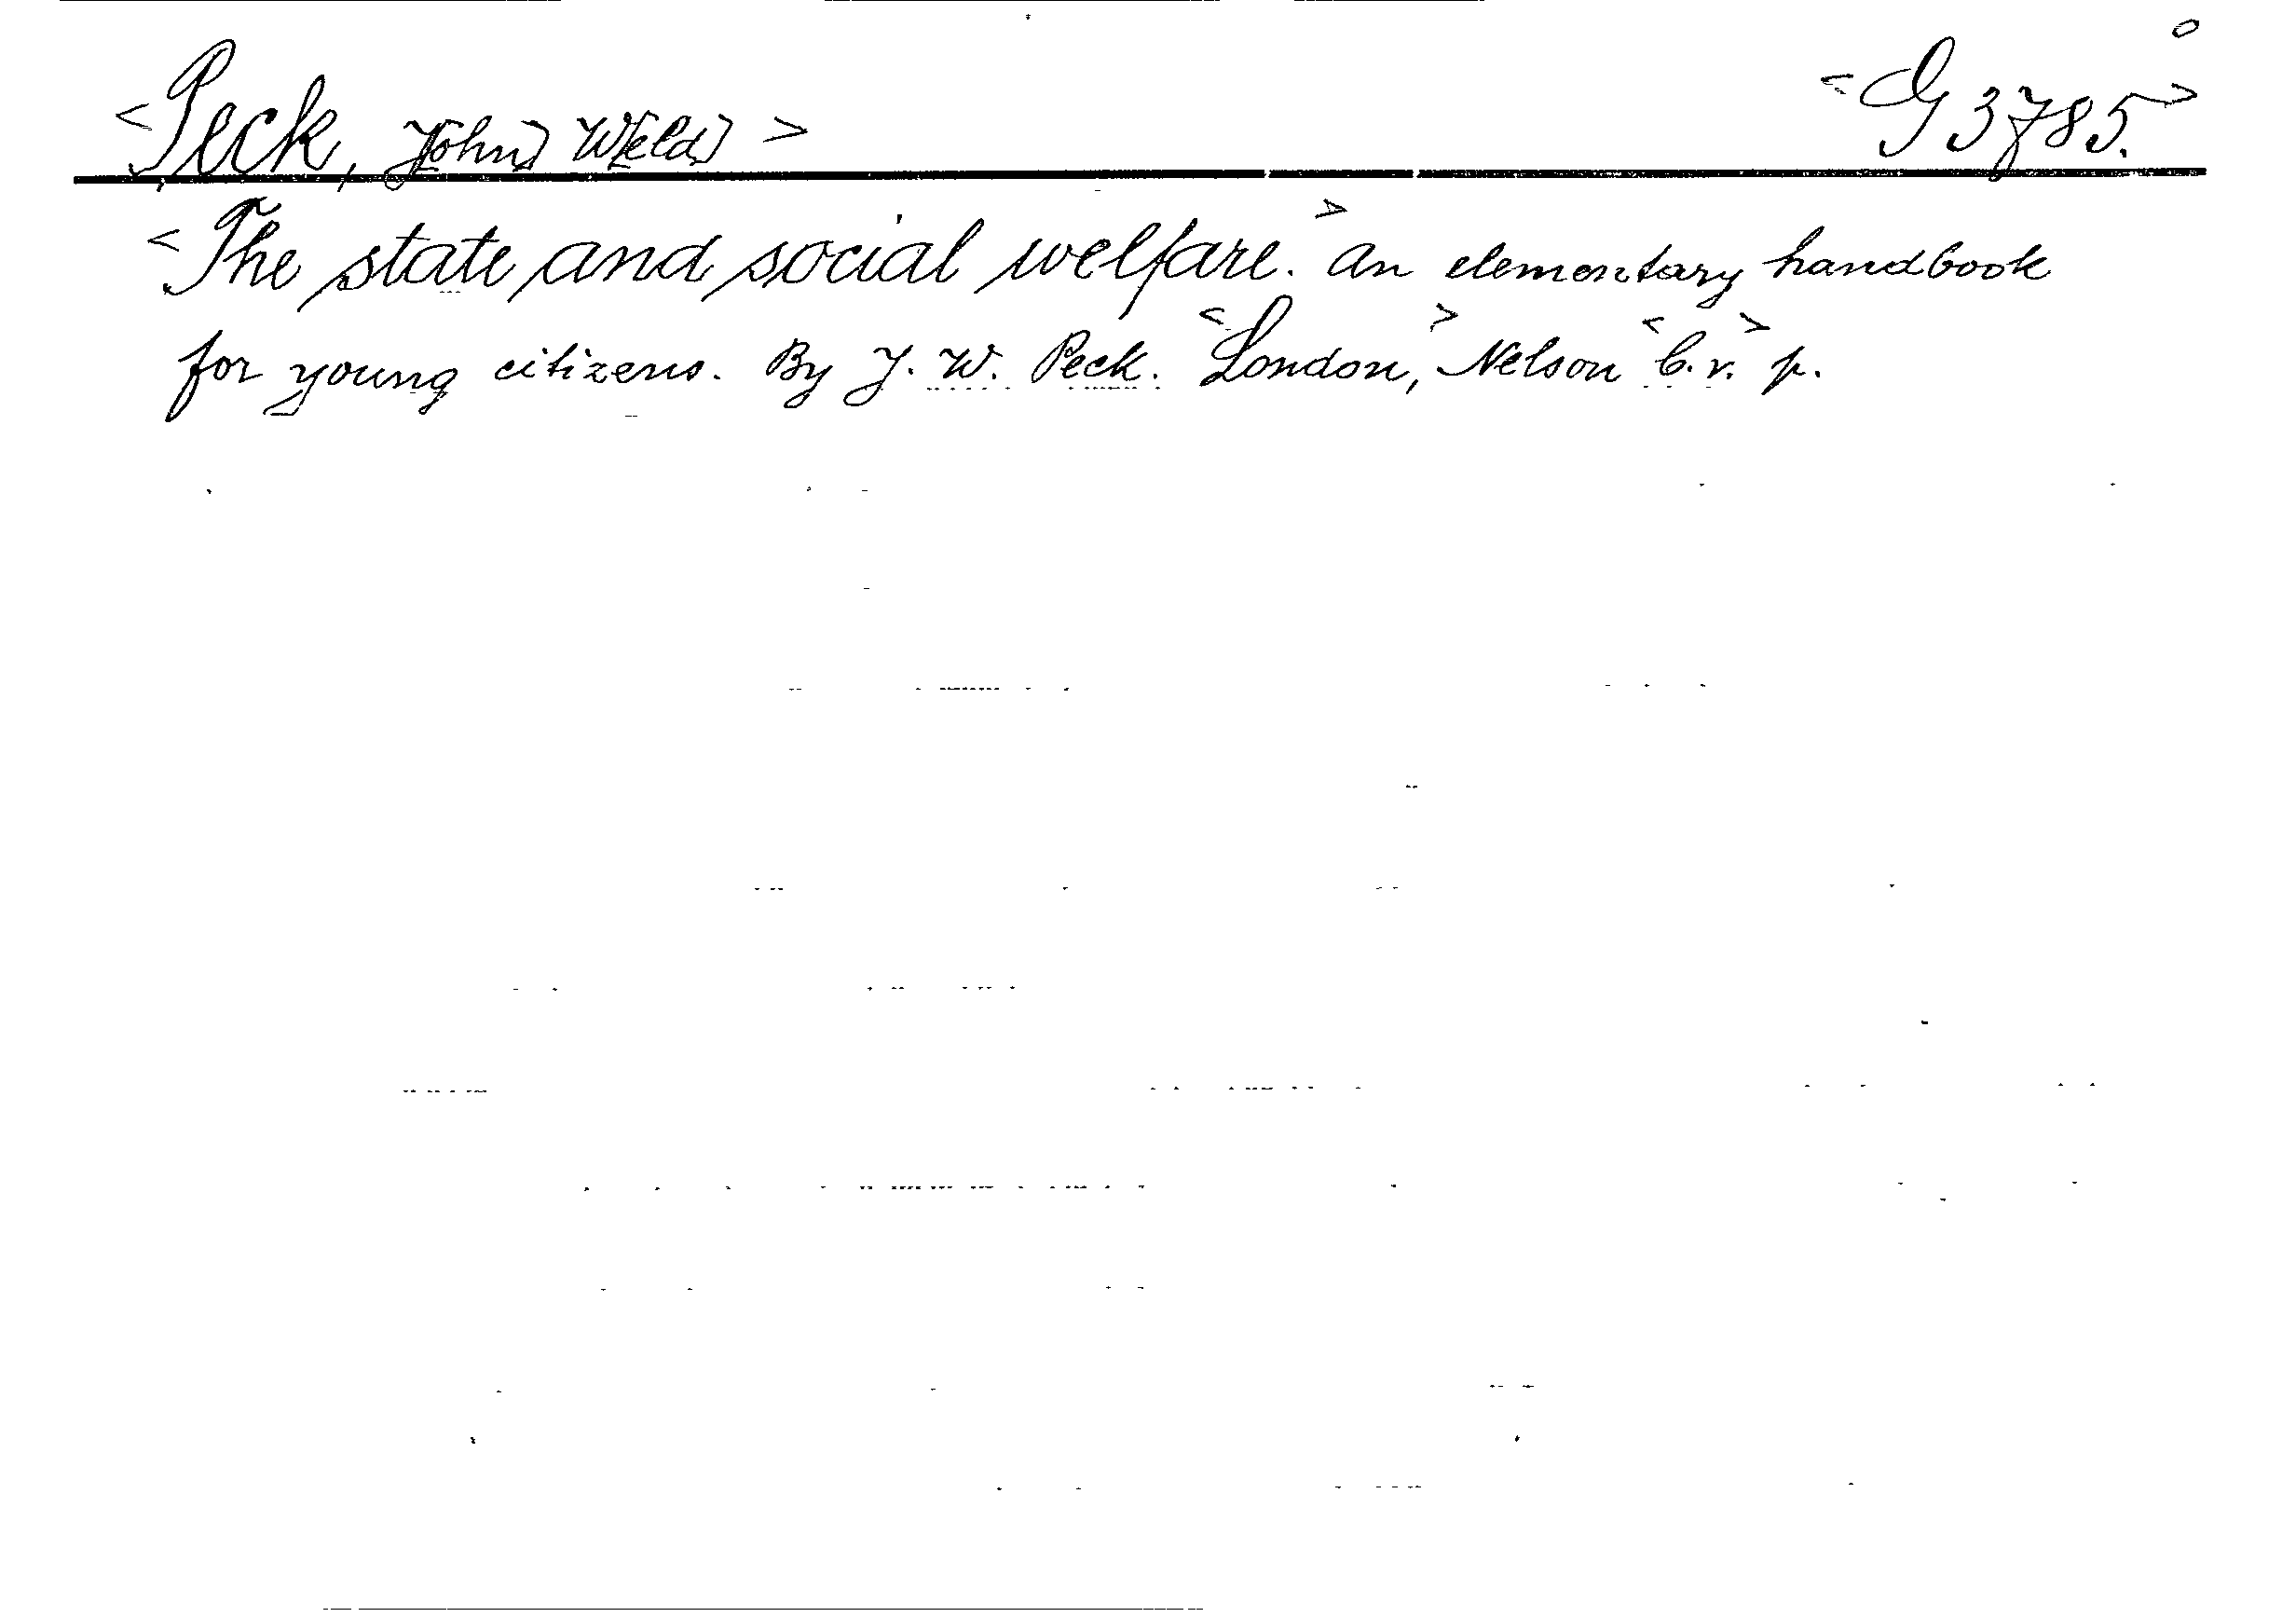 <Peck, J[ohn] W[eld] > <G 3785.>
<The state and social welfare.> An elementary handbook
for young citizens. By J. W. Peck. <London,> Nelson <C. v.> p.